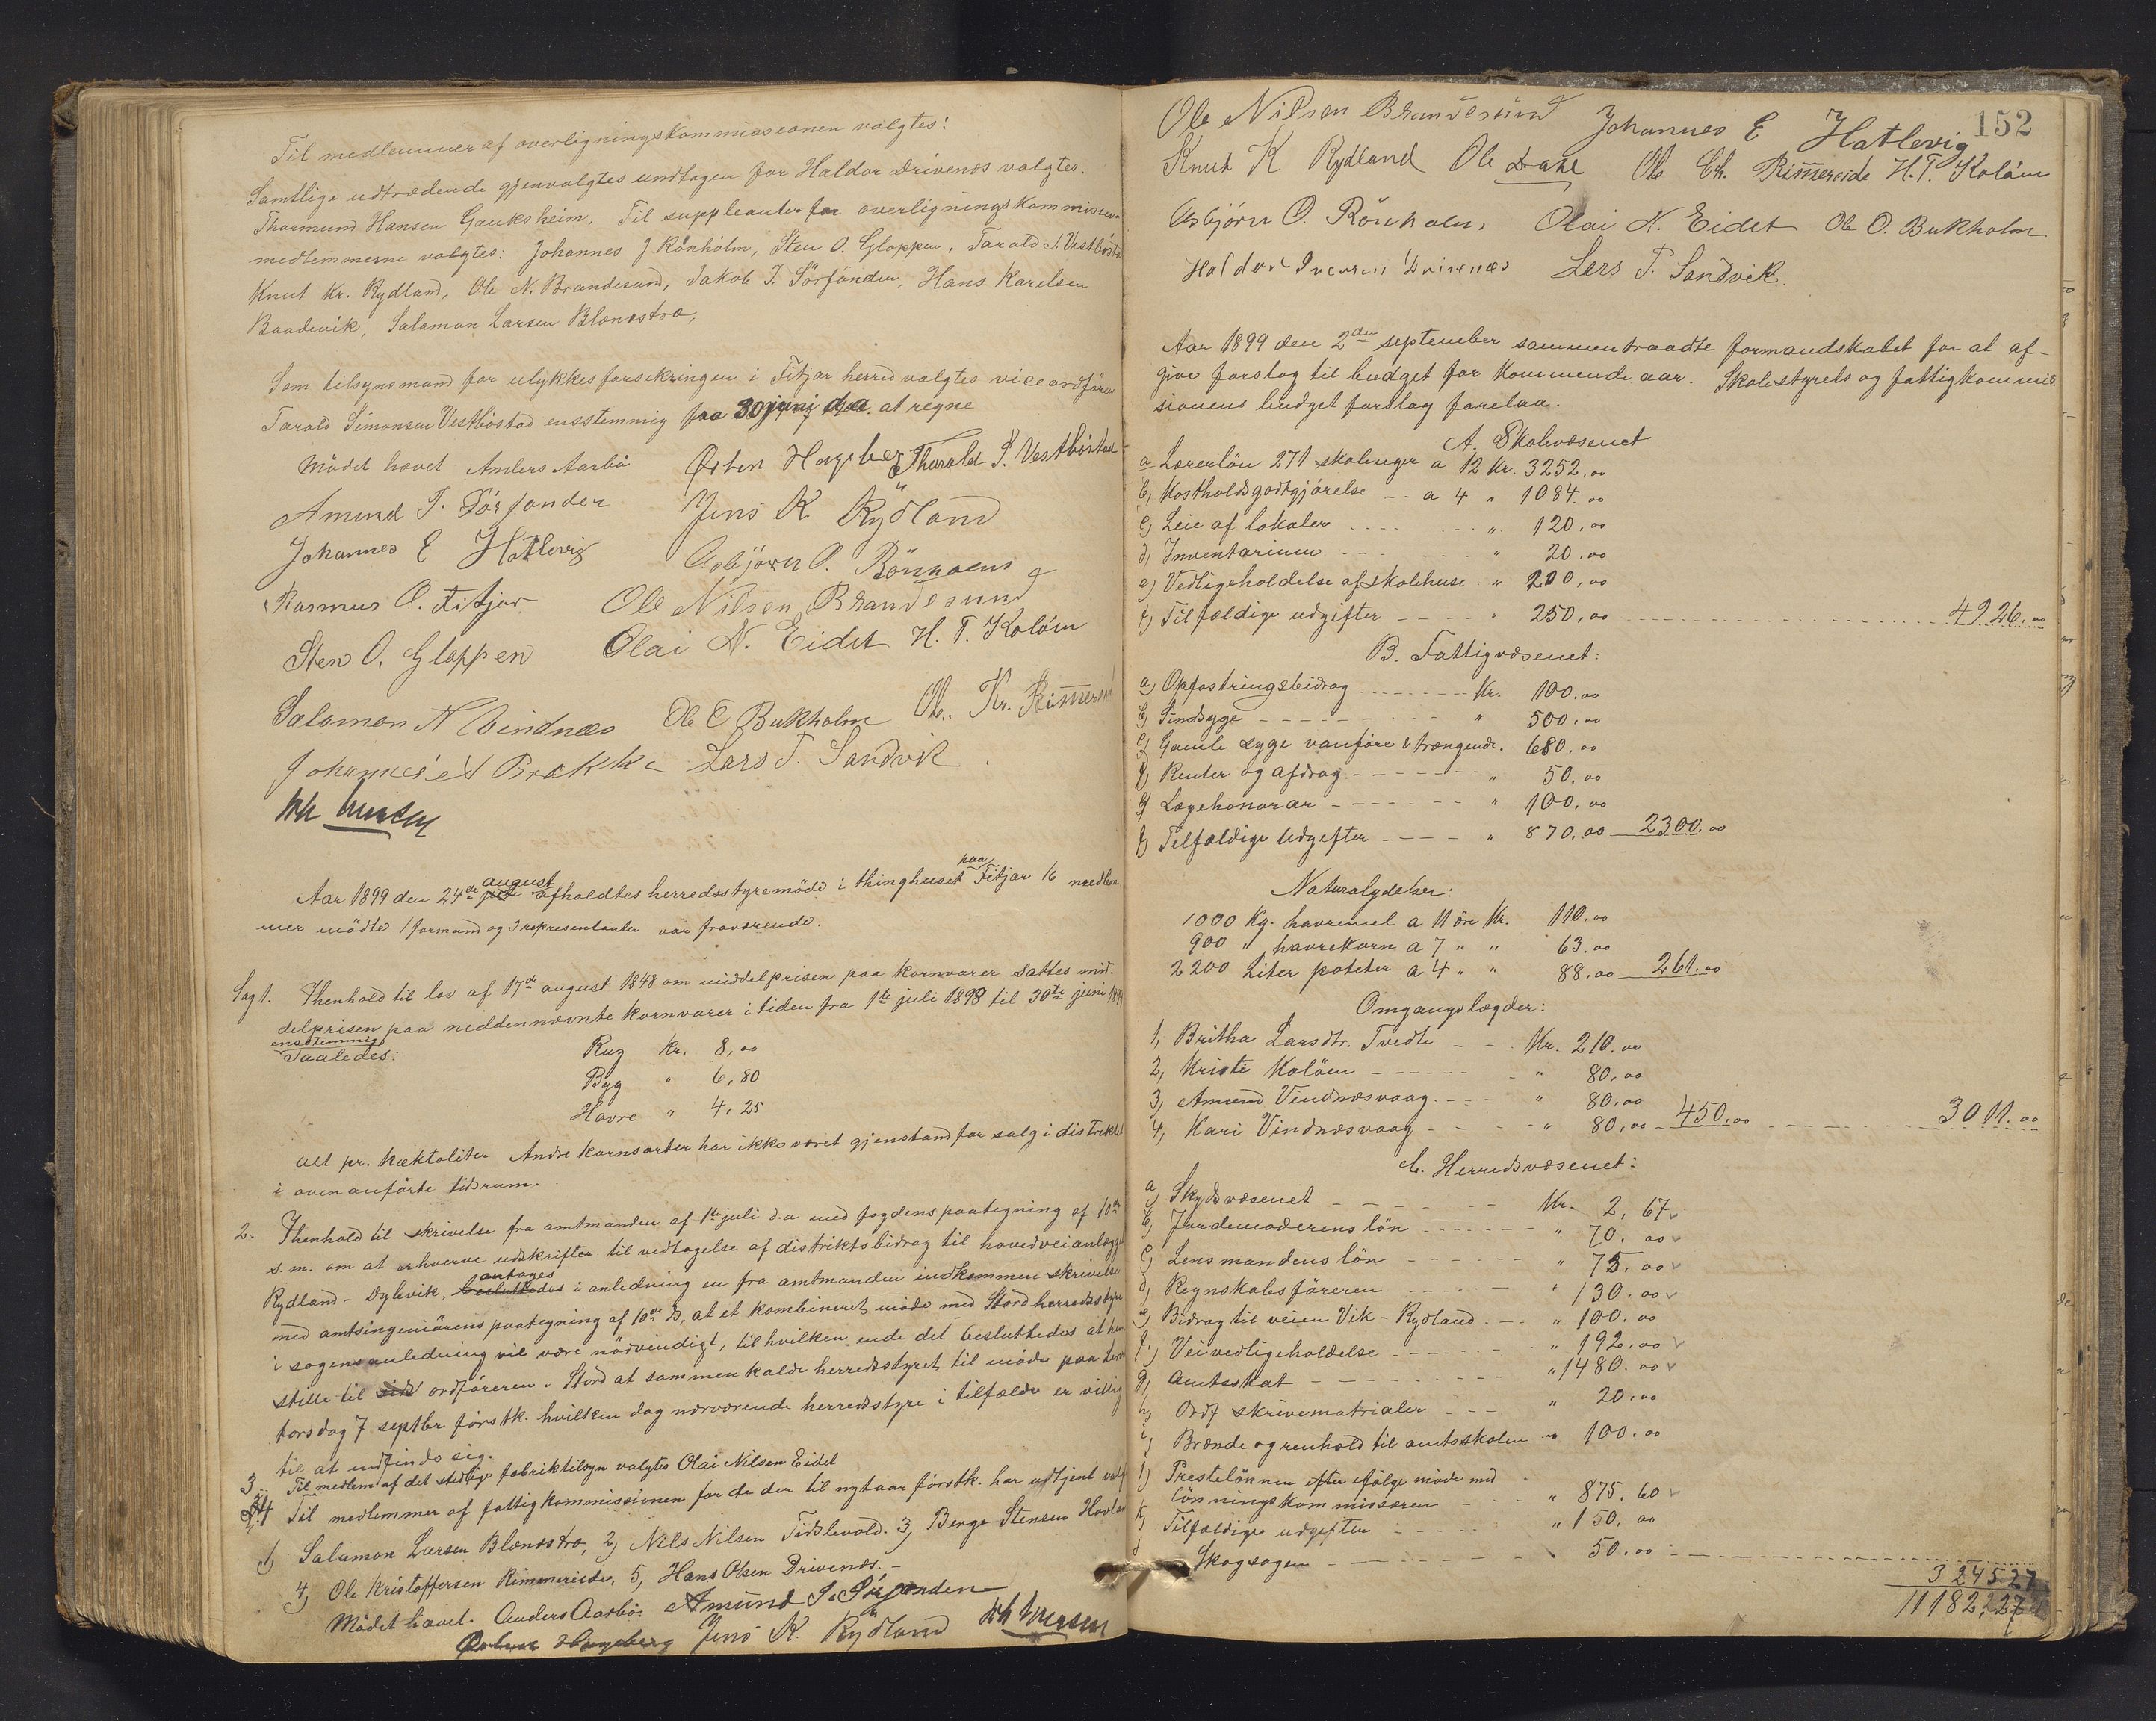 Til medlemmer af overligningskommissionen valgtes:
Samtlige udtrædende gjenvalgtes undtagen for Haldor Drivenes valgtes.
Thormund Hansen Gauksheim. Til suppleanter for overligningskommissions
medlemmerne valgtes: Johannes J Rönholm, Sten O. Gloppen, Tarald S. Vestböstad
Knut Kr. Rydland, Ole N. Brandesund, Jakob T. Sörfonden, Hans Karelsen
Baadevik, Salamon Larsen Blænestrø,
Som tilsynsmand for ulykkesforsikringen i Fitjar herred valgtes viceordfören
Tarald Simonsen Vestböstad ensstemmig fra 30 juni d.a. at regne
Mödet hævet Anders Aarbö Østen Hageberg Tharald S. Vestböstad
Amund T. Sörfonden Jens K Rydland
Johannes E Hatlevig Asbjörn O. Rönholm
Rasmus O. Fitjar Ole Nilsen Brandesund
Sten O. Gloppen Olai N. Eidet H. T. Kolöen
Salamon N Vindnæs Ole O Bukholm Ole Kr. Rimmereid
Johannes A Brakke Lars T. Sandvik
Joh Iversen
Aar 1899 den 24de august afholdtes herredsstyremöde i thinghuset paa Fitjar 16 medlem
mer mödte 1 formand og 3 repræsentanter var fraværende.
Sag 1. I henhold til lov af 17de august 1848 om middelprisen paa kornvarer sattes mid-
delprisen paa neddennævnte kornvarer i tiden fra 1ste juli 1898 til 30te juni 1899
ensstemmig
saaledes: Rug Kr. 8,00
Byg " 6,80
Havre " 4,25
alt pr. hektoliter Andre kornsorter har ikke været gjenstand for salg i distriktet
i ovenanförte tidsrum.
2. I henhold til skrivelse fra amtmanden af 1ste juli d.a med fogdens paategning af 10de
s.m. om at erhverve udskrifter til vedtagelse af distriktsbidrag til hovedveianlægget
Rydland-Dyvik, antages i anledning en fra amtmanden indkommen skrivelse
med amtsingeniörens paategning af 10de ds, at et kombineret möde med Stord herredsstyre
i sagens anledning vil være nödvendigt, til hvilken ende det besluttedes at hen
stille til ordföreren i Stord at sammenkalde herredsstyret til möde paa
torsdag 7 septbr förstk. hvilken dag nærværende herredsstyre i tilfælde er villig
til at indfinde sig.
3. Til medlem af det stedlige fabriktilsyn valgtes Olai Nilsen Eidet
4 Til medlemmer af fattigkommissionen for de der til nytaar förstk. har udtjent valg
1) Salamon Larsen Blænestrø, 2) Nils Nilsen Tislevold. 3) Berge Stensen Hovland
4) Ole Kristoffersen Rimmereide, 5, Hans Olsen Drivenes.-
Mödet hævet. Anders Aarbö. Amund T. Sörfonden
Østen Hageberg Jens K. Rydland Joh Iversen
152
Ole Nilsen Brandesund Johannes E Hatlevig
Knut K Rydland Ole Dahl Ole Chr. Rimmereide H. T. Kolöen
Asbjörn O. Rönholm, Olai N. Eidet Ole O. Bukholm
Haldor Iversen Drivenes Lars T. Sandvik.
Aar 1899 den 2den september sammentraadte formandskabet for at af-
give forslag til budget for kommende aar. Skolestyrets og fattigkommis
sionens budget forslag forelaa.
A. Skolevæsenet
a Lærerlön 271 skoleuger a 12 Kr. 3252,00
b, Kostholdsgodtgjörelse -- a 4 " 1084.00
c) Leie af lokaler " 120,00
d, Inventarium " 20.00
e) Vedligeholdelse af skolehuse " 200,00
f) Tilfældige udgifter " 250,00 4926.00
B. Fattigvæsenet:
a) Opfostringsbidrag Kr. 100.00
b) Sindsyge " 500,00
c) Gamle syge vanföre & trængende. 680.00
d) Renter og afdrag " 50.00
e) Lægehonorar " 100,00
f) Tilfældige udgifter " 870,00 2300.00
Naturalydelser:
1000 Kg. havremel a 11 öre Kr. 110.00
900 " havrekorn a 7 " " 63.00
2200 Liter poteter a 4 " " 88.00 261.00
Omgangslægder:
1, Britha Larsdtr. Tvedte Kr. 210.00
2, Kristi Kolöen " 80,00
3, Amund Vindnæsvaag " 80.00
4, Kari Vindnæsvaag " 80,00 450.00 3011.00
C. Herredsvæsenet:
a) Skydsvæsenet Kr. 2,67
b, Jordemoderens lön " 70.00
c) Lensmandens lön " 75.00
d) Regnskabsföreren " 130.00
e) Bidrag til veien Vik-Rydland " 100.00
f) Veivedligeholdelse " 192.00
g, Amtsskat " 1480.00
h, Ordf skrivematrialer " 20.00
i, Brænde og renhold til amtsskolen " 100.00
j) Prestelönnen efter ifölge möde med
lönningskommissæren " 875,60
k, Tilfældige udgifter " 150.00
Skogsagen 50.00
3245,27
11182,27